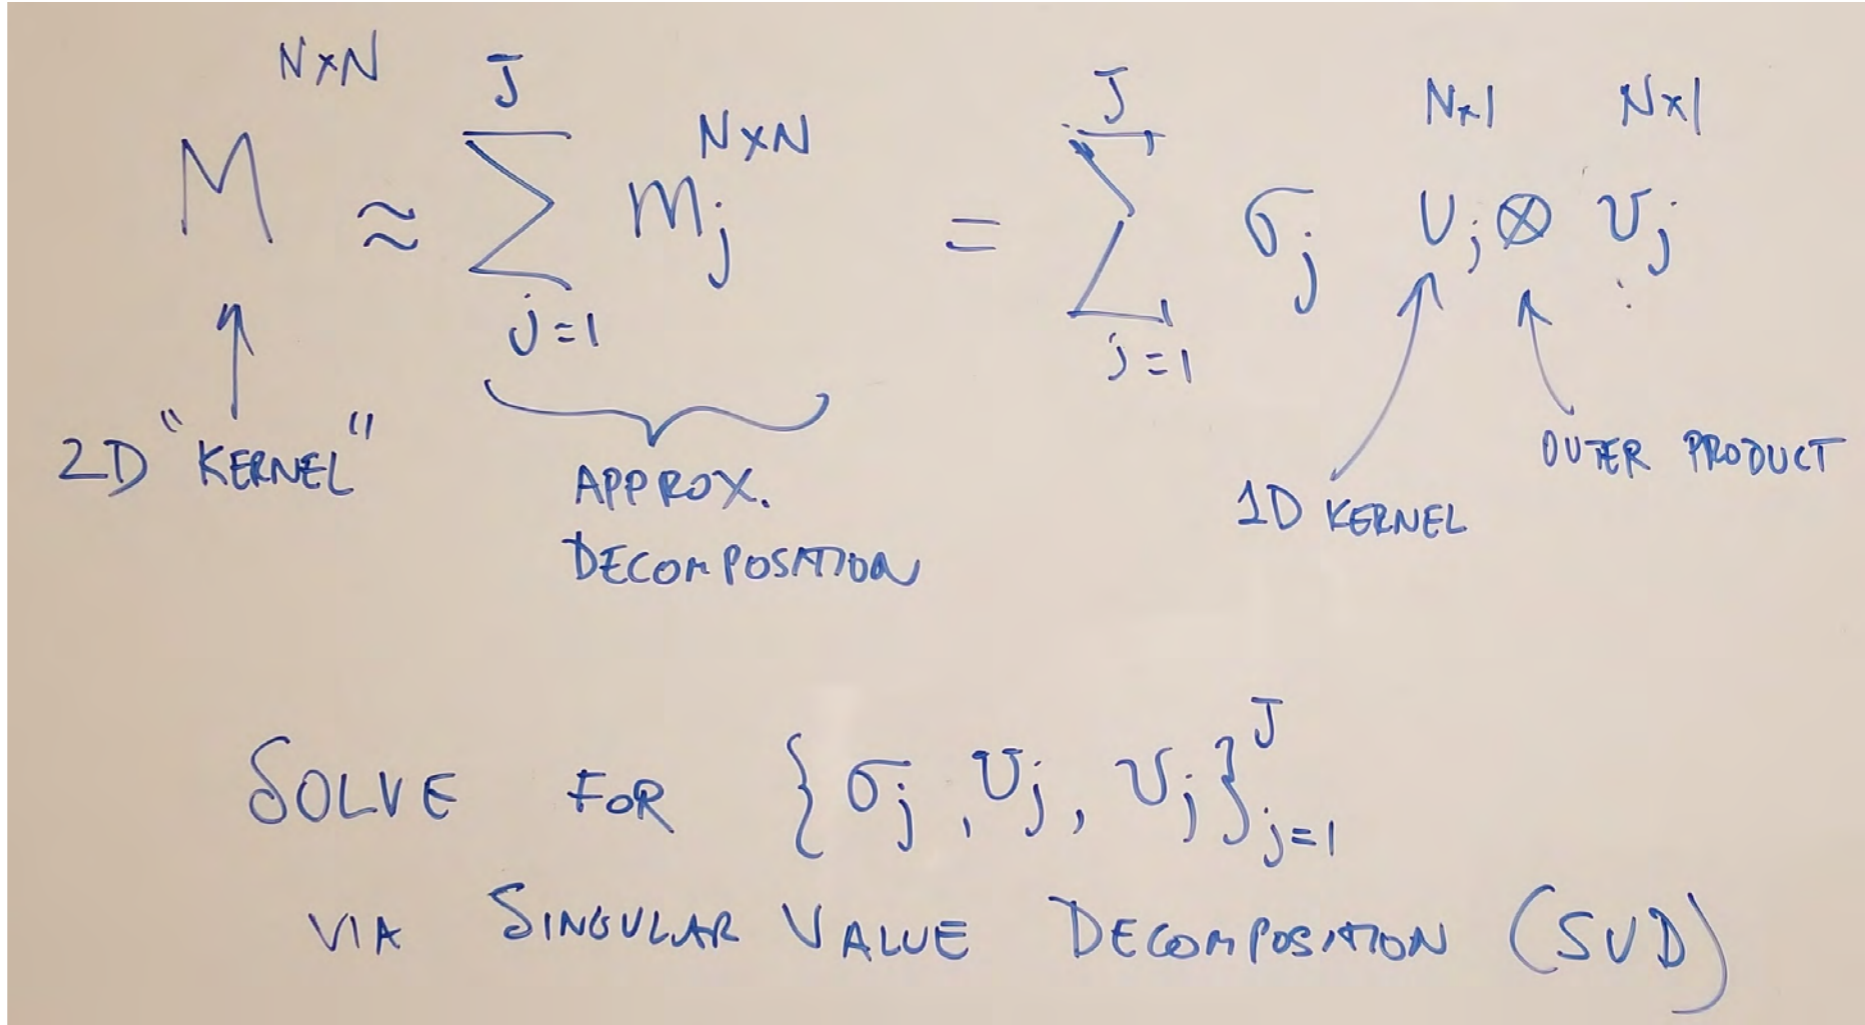 N×N J N×N J N×1 N×1
M ≈ ∑ mj = ∑ σj Uj ⊗ vj
j=1 j=1
2D "KERNEL"
APPROX.
DECOMPOSITION
1D KERNEL
OUTER PRODUCT
SOLVE FOR {σj, Uj, vj}J j=1
VIA SINGULAR VALUE DECOMPOSITION (SVD)